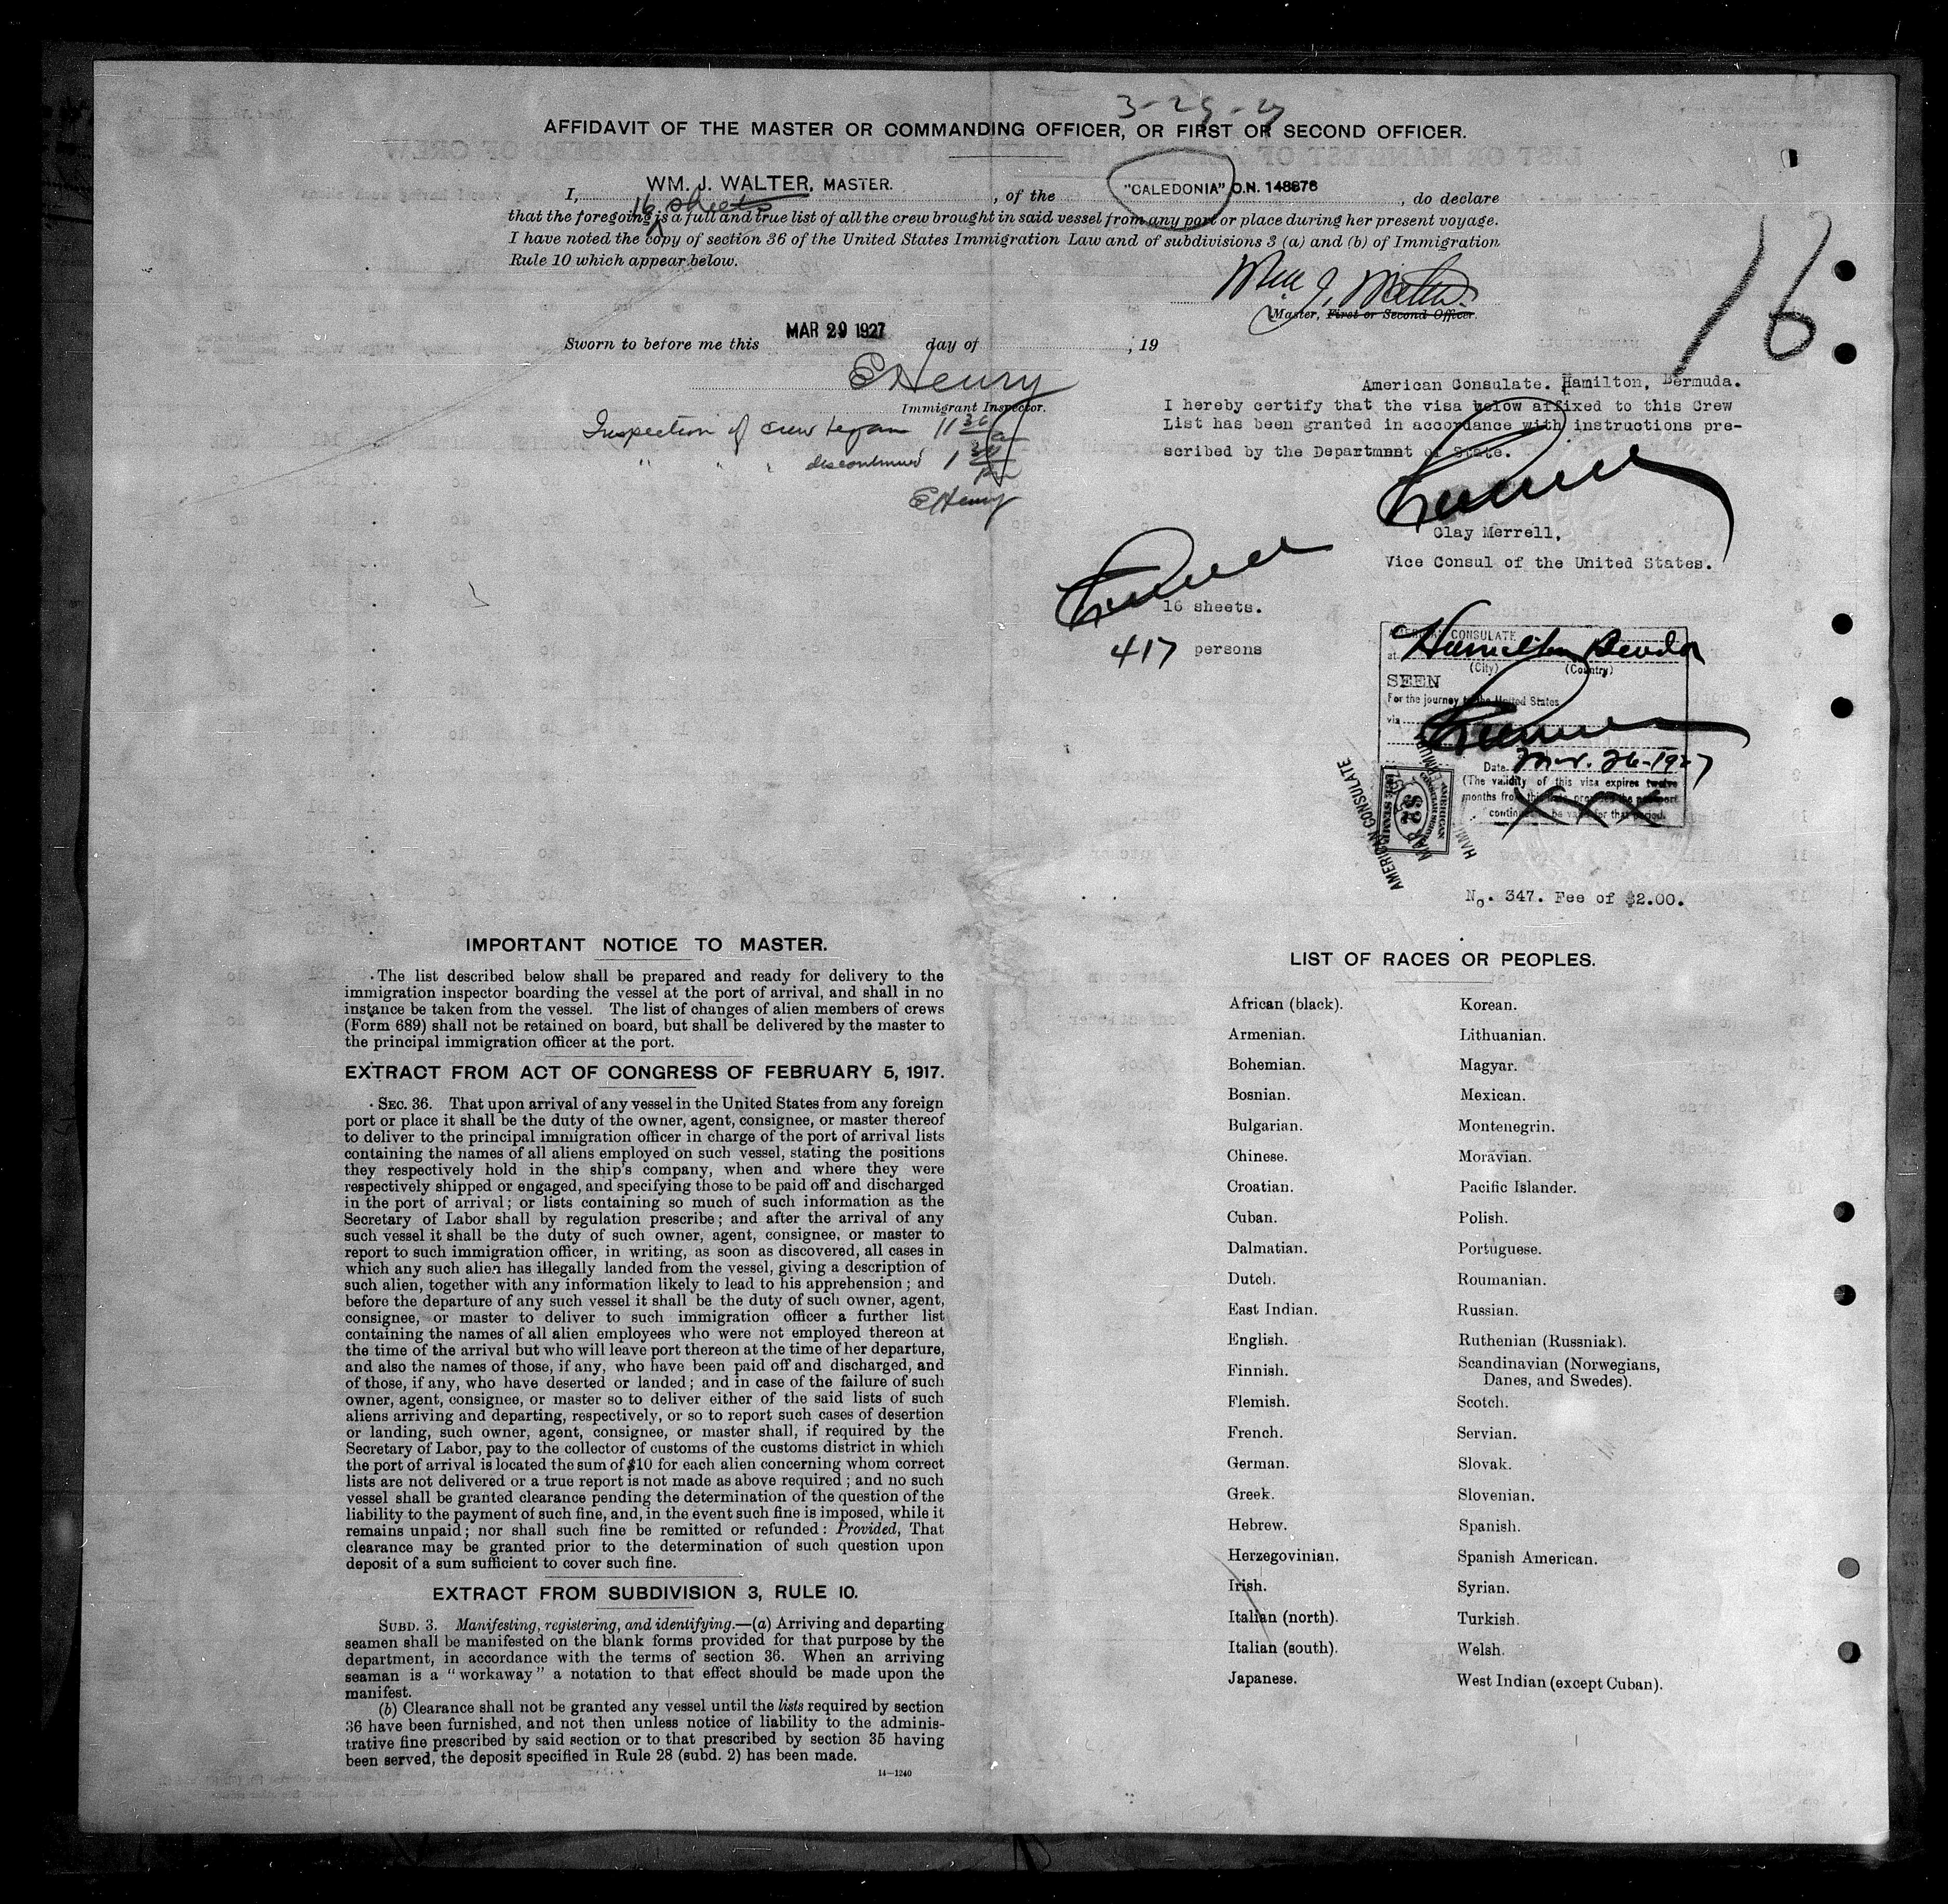 3-29-27
AFFIDAVIT OF THE MASTER OR COMMANDING OFFICER, OR FIRST OR SECOND OFFICER.
I, WM. J. WALTER, MASTER. , of the "CALEDONIA" O.N. 148876 , do declare
16 sheets
that the foregoing is a full and true list of all the crew brought in said vessel from any port or place during her present voyage.
I have noted the copy of section 36 of the United States Immigration Law and of subdivisions 3 (a) and (b) of Immigration
Rule 10 which appear below.
Wm J. Walter.
Master, First or Second Officer.
16
Sworn to before me this MAR 29 1927 day of , 19
E Henry
Immigrant Inspector.
Inspection of crew began 11 30 am
" " " discontinued 1 30 pm
E Henry
American Consulate. Hamilton, Bermuda.
I hereby certify that the visa below affixed to this Crew
List has been granted in accordance with instructions pre-
scribed by the Departmnnt of State.
Clay Merrell,
Vice Consul of the United States.
16 sheets.
417 persons
AMERICAN CONSULATE
at Hamilton Bermuda
(City) (Country)
SEEN
For the journey to the United States
via
Date. Mar. 26-1927
(The validity of this visa expires twelve
months from this date provided the passport
continues to be valid for that period.
XXX
AMERICAN CONSULATE
AMERICAN
FEE STAMP
$2
MAR
No. 347. Fee of $2.00.
IMPORTANT NOTICE TO MASTER.
The list described below shall be prepared and ready for delivery to the
immigration inspector boarding the vessel at the port of arrival, and shall in no
instance be taken from the vessel. The list of changes of alien members of crews
(Form 689) shall not be retained on board, but shall be delivered by the master to
the principal immigration officer at the port.
EXTRACT FROM ACT OF CONGRESS OF FEBRUARY 5, 1917.
SEC. 36. That upon arrival of any vessel in the United States from any foreign
port or place it shall be the duty of the owner, agent, consignee, or master thereof
to deliver to the principal immigration officer in charge of the port of arrival lists
containing the names of all aliens employed on such vessel, stating the positions
they respectively hold in the ship's company, when and where they were
respectively shipped or engaged, and specifying those to be paid off and discharged
in the port of arrival; or lists containing so much of such information as the
Secretary of Labor shall by regulation prescribe; and after the arrival of any
such vessel it shall be the duty of such owner, agent, consignee, or master to
report to such immigration officer, in writing, as soon as discovered, all cases in
which any such alien has illegally landed from the vessel, giving a description of
such alien, together with any information likely to lead to his apprehension; and
before the departure of any such vessel it shall be the duty of such owner, agent,
consignee, or master to deliver to such immigration officer a further list
containing the names of all alien employees who were not employed thereon at
the time of the arrival but who will leave port thereon at the time of her departure,
and also the names of those, if any, who have been paid off and discharged, and
of those, if any, who have deserted or landed; and in case of the failure of such
owner, agent, consignee, or master so to deliver either of the said lists of such
aliens arriving and departing, respectively, or so to report such cases of desertion
or landing, such owner, agent, consignee, or master shall, if required by the
Secretary of Labor, pay to the collector of customs of the customs district in which
the port of arrival is located the sum of $10 for each alien concerning whom correct
lists are not delivered or a true report is not made as above required; and no such
vessel shall be granted clearance pending the determination of the question of the
liability to the payment of such fine, and, in the event such fine is imposed, while it
remains unpaid; nor shall such fine be remitted or refunded: Provided, That
clearance may be granted prior to the determination of such question upon
deposit of a sum sufficient to cover such fine.
EXTRACT FROM SUBDIVISION 3, RULE 10.
SUBD. 3. Manifesting, registering, and identifying.—(a) Arriving and departing
seamen shall be manifested on the blank forms provided for that purpose by the
department, in accordance with the terms of section 36. When an arriving
seaman is a "workaway" a notation to that effect should be made upon the
manifest.
(b) Clearance shall not be granted any vessel until the lists required by section
36 have been furnished, and not then unless notice of liability to the adminis-
trative fine prescribed by said section or to that prescribed by section 35 having
been served, the deposit specified in Rule 28 (subd. 2) has been made.
14—1240
LIST OF RACES OR PEOPLES.
African (black).
Armenian.
Bohemian.
Bosnian.
Bulgarian.
Chinese.
Croatian.
Cuban.
Dalmatian.
Dutch.
East Indian.
English.
Finnish.
Flemish.
French.
German.
Greek.
Hebrew.
Herzegovinian.
Irish.
Italian (north).
Italian (south).
Japanese.
Korean.
Lithuanian.
Magyar.
Mexican.
Montenegrin.
Moravian.
Pacific Islander.
Polish.
Portuguese.
Roumanian.
Russian.
Ruthenian (Russniak).
Scandinavian (Norwegians,
Danes, and Swedes).
Scotch.
Servian.
Slovak.
Slovenian.
Spanish.
Spanish American.
Syrian.
Turkish.
Welsh.
West Indian (except Cuban).